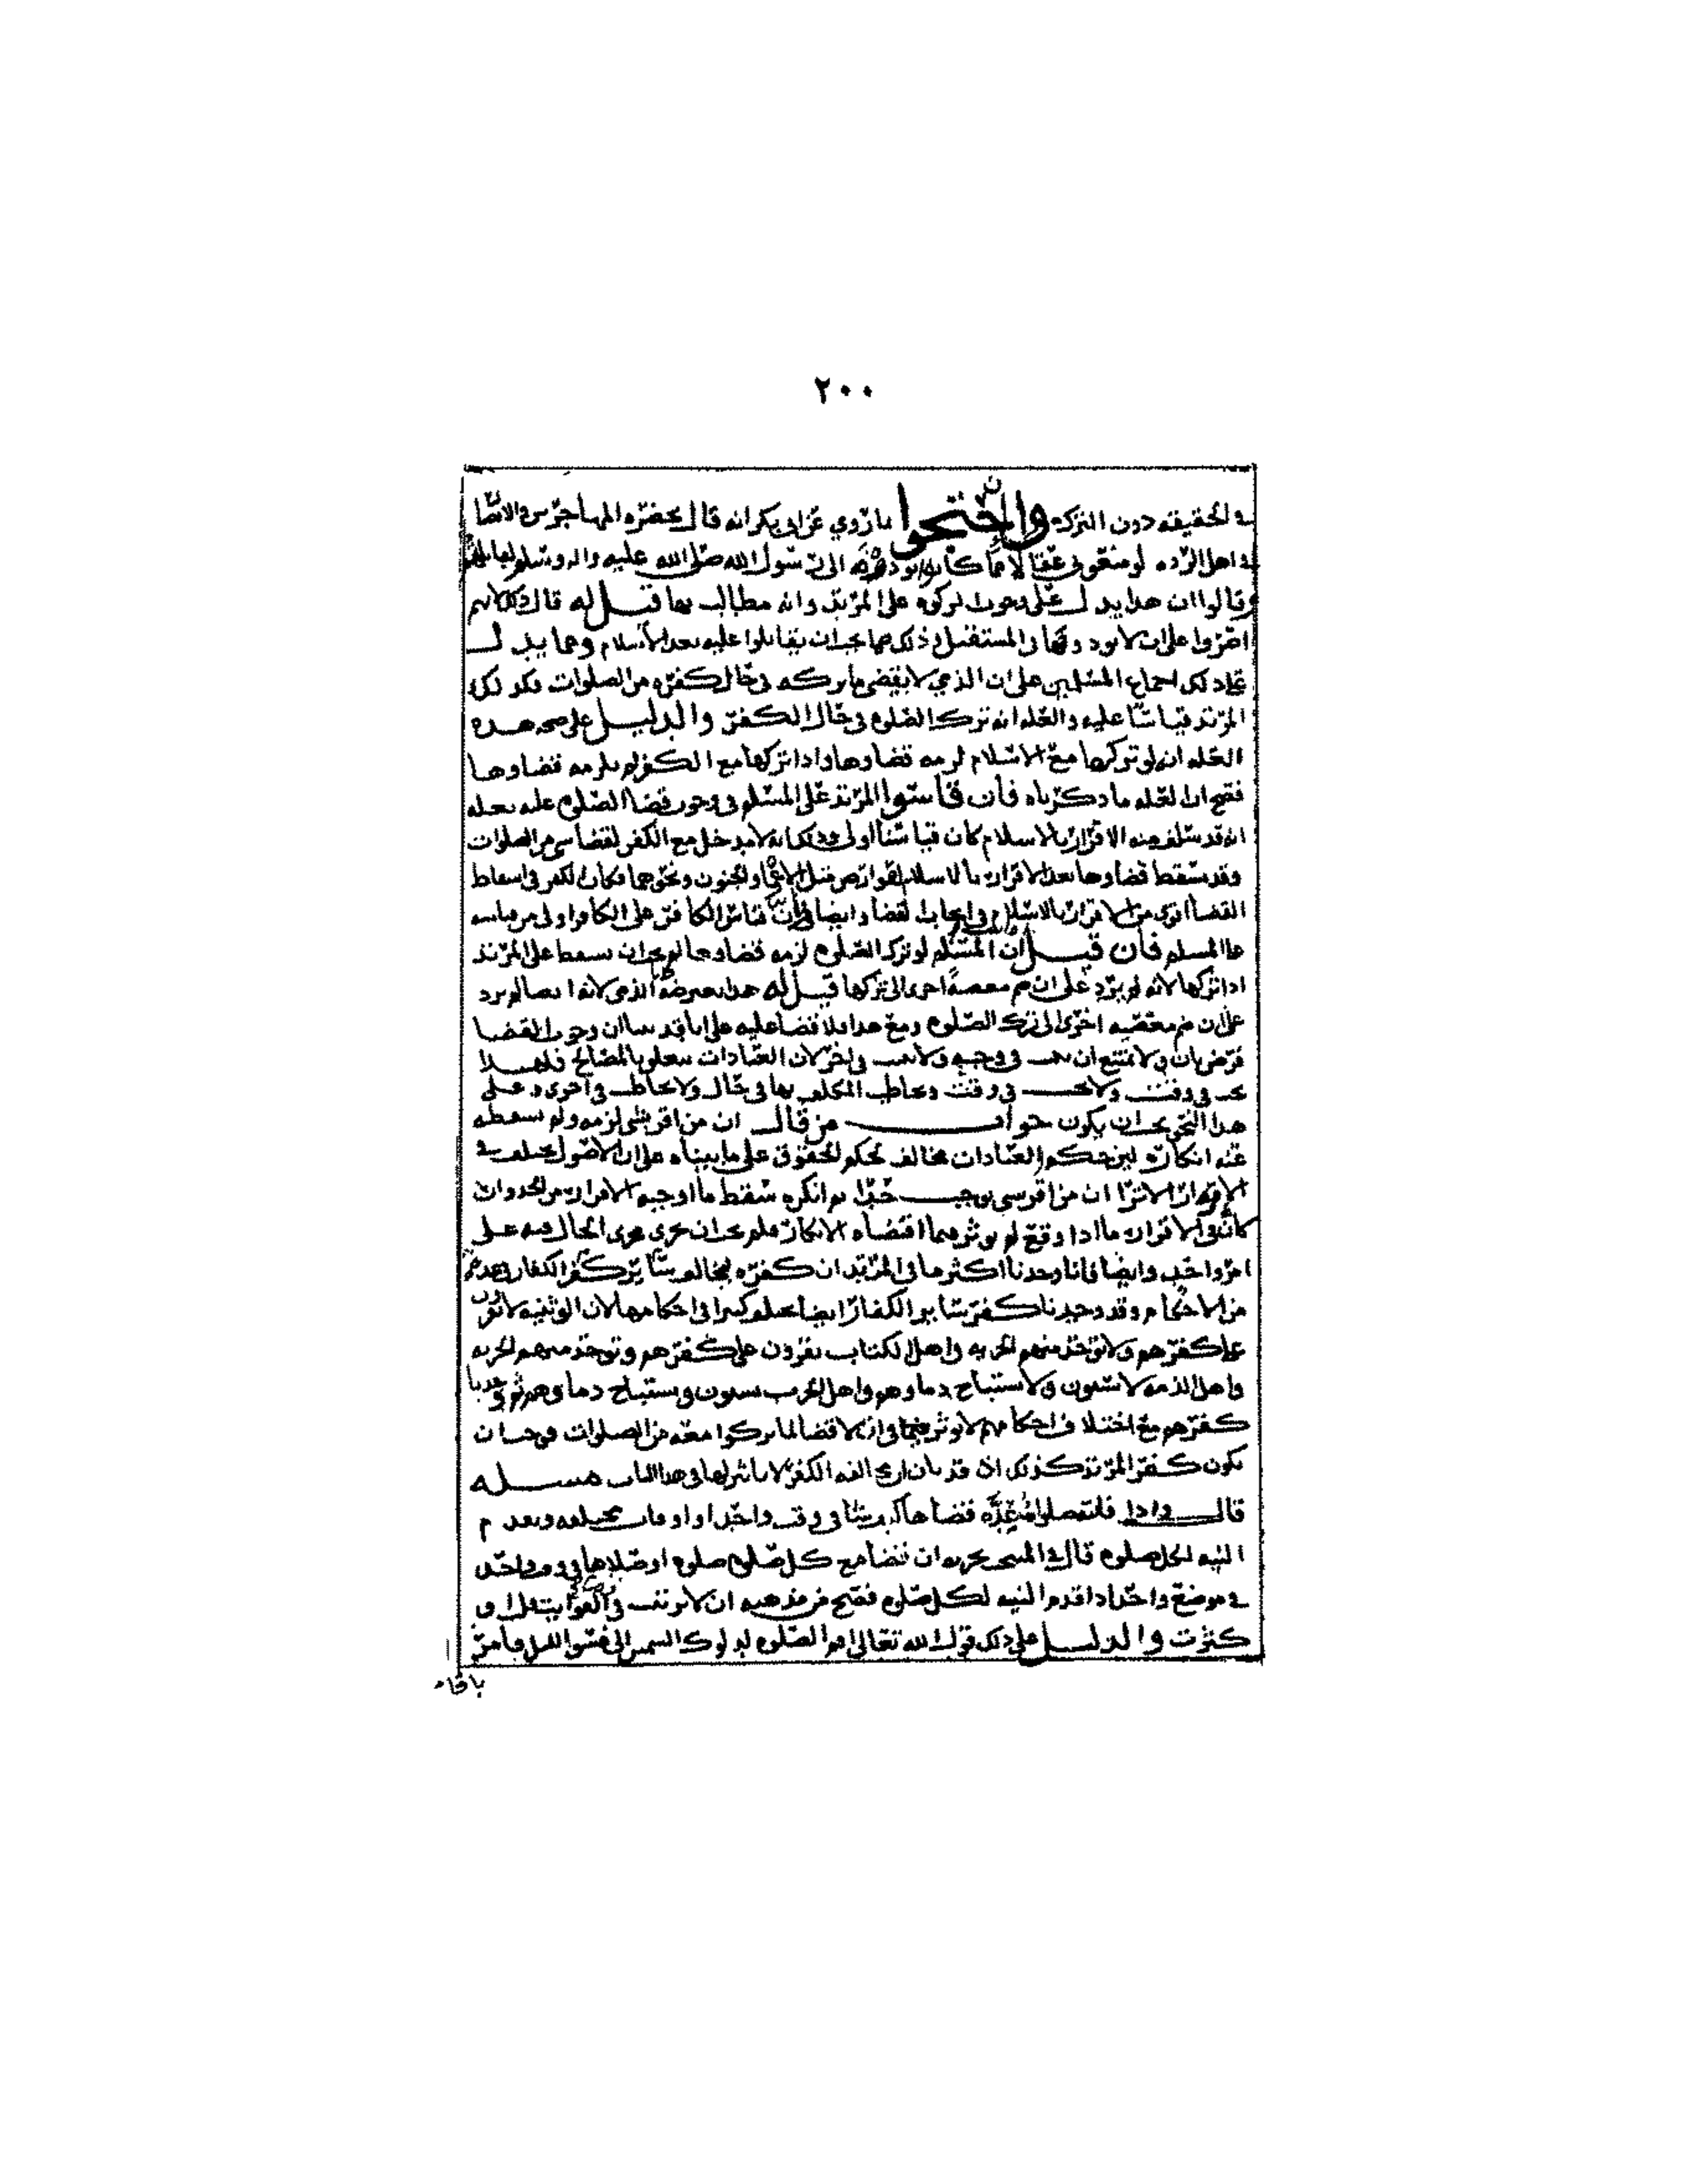 ٢٠٠
في الحقيقه دون التركه وإن احتجوا بما روي عن ابي بكر انه قال بحضره المهاجرين والانصار
في اهل الرده لو منعوني عقالا مما كانوا يودونه الى رسول الله صلى الله عليه واله وسلم لقاتلتهم
وقالوا ان هذا يدل على وجوب الزكوه على المرتد وانه مطالب بها قيل له قال ذلك لانهم
اصروا على ان لا يودوها في المستقبل وذلك مما يجب ان يقاتلوا عليه بعد الاسلام ومما يدل
على ذلك اجماع المسلمين على ان الذمي لا يقضي ما تركه في حال كفره من الصلوات فكذلك
المرتد قياسا عليه والعله انه ترك الصلوه في حال الكفر والدليل على صحه هذه
العله انه لو تركها مع الاسلام لزمه قضاوها واذا تركها مع الكفر لم يلزمه قضاوها
فصح ان العله ما ذكرناه فان قاسوا المرتد على المسلم في وجوب قضا الصلوه عليه بعله
انه قد سلف منه الاقرار بالاسلام كان قياسنا اولى وذلك انه لا مدخل مع الكفر لقضا شي من الصلوات
وقد سقط قضاوها بعد الاقرار بالاسلام لعوارض مثل الاغما والجنون ونحوهما فكان الكفر في اسقاط
القضا اقوى من الاقرار بالاسلام في ايجاب القضا وايضا فان قياس الكافر على الكافر اولى من قياسه
على المسلم فان قيل ان المسلم لو ترك الصلوه لزمه قضاوها لم يجز ان يسقط على المرتد
اذا تركها لانه لم يزد على ان ضم معصية اخرى الى تركها قيل له هذا يعترضه الذمي لانه ايضا لم يزد
على ان ضم معصيه اخرى الى ترك الصلوه ومع هذا فلا قضا عليه على انا قد بينا ان وجوب القضا
فرض ثان ولا يمتنع ان يجب في وجه ولا يجب في اخر لان العبادات تتعلق بالمصالح فلهذا
يجب في وقت ولا يجب في وقت ويخاطب المكلف بها في حال ولا يخاطب في اخرى وعلى
هذا النحو يجب ان يكون جواب من قال ان من اقر بشي لزمه ولم يسقطه
عنه انكاره لان حكم العبادات مخالف لحكم الحقوق على ما بيناه على ان الاصول تختلف في
الاقرار الا ترى ان من اقر بشي يوجب حدا ثم انكره سقط ما اوجبه الاقرار من الحد وان
كان في الاقرار ما اذا وقع لم يوثر فيما اقتضاه الانكار فلم يجب ان يجرى مجرى الحال فيه على
امر واحد وايضا فانا وجدنا اكثر ما في المرتد ان كفره يخالف سائر كفر الكفار في عده
من الاحكام وقد وجدنا كفر سائر الكفار ايضا يختلف كثيرا في احكامها لان الوثنيه لا يقرون
على كفرهم ولا توخذ منهم الجزيه واهل الكتاب يقرون على كفرهم وتوخذ منهم الجزيه
واهل الذمه لا يسبون ولا يستباح دماوهم واهل الحرب يسبون ويستباح دماوهم ثم وجدنا
كفرهم مع اختلاف احكامهم لا يوثر فيما في ان لا قضا لما تركوا معه من الصلوات فوجب ان
يكون كفر المرتد كذلك اذ قد بان ان مخالفه الكفر لا تاثير لها في هذا الباب مسله
قال واذا فاتته صلوات عده قضاها كيف شا في وقت واحد او اوقات مختلفه وبعد م
النيه لكل صلوه قال في المنتخب يجزيه ان يقضا مع كل صلوه صلوه او صلاها في يوم واحد
في موضع واحد اذا قدم النيه لكل صلوه فصح من مذهبه ان لا ترتيب في الفوايت قلت او
كثرت والدليل على ذلك قول الله تعالى اقم الصلوه لدلوك الشمس الى غسق الليل فامر
باقامه